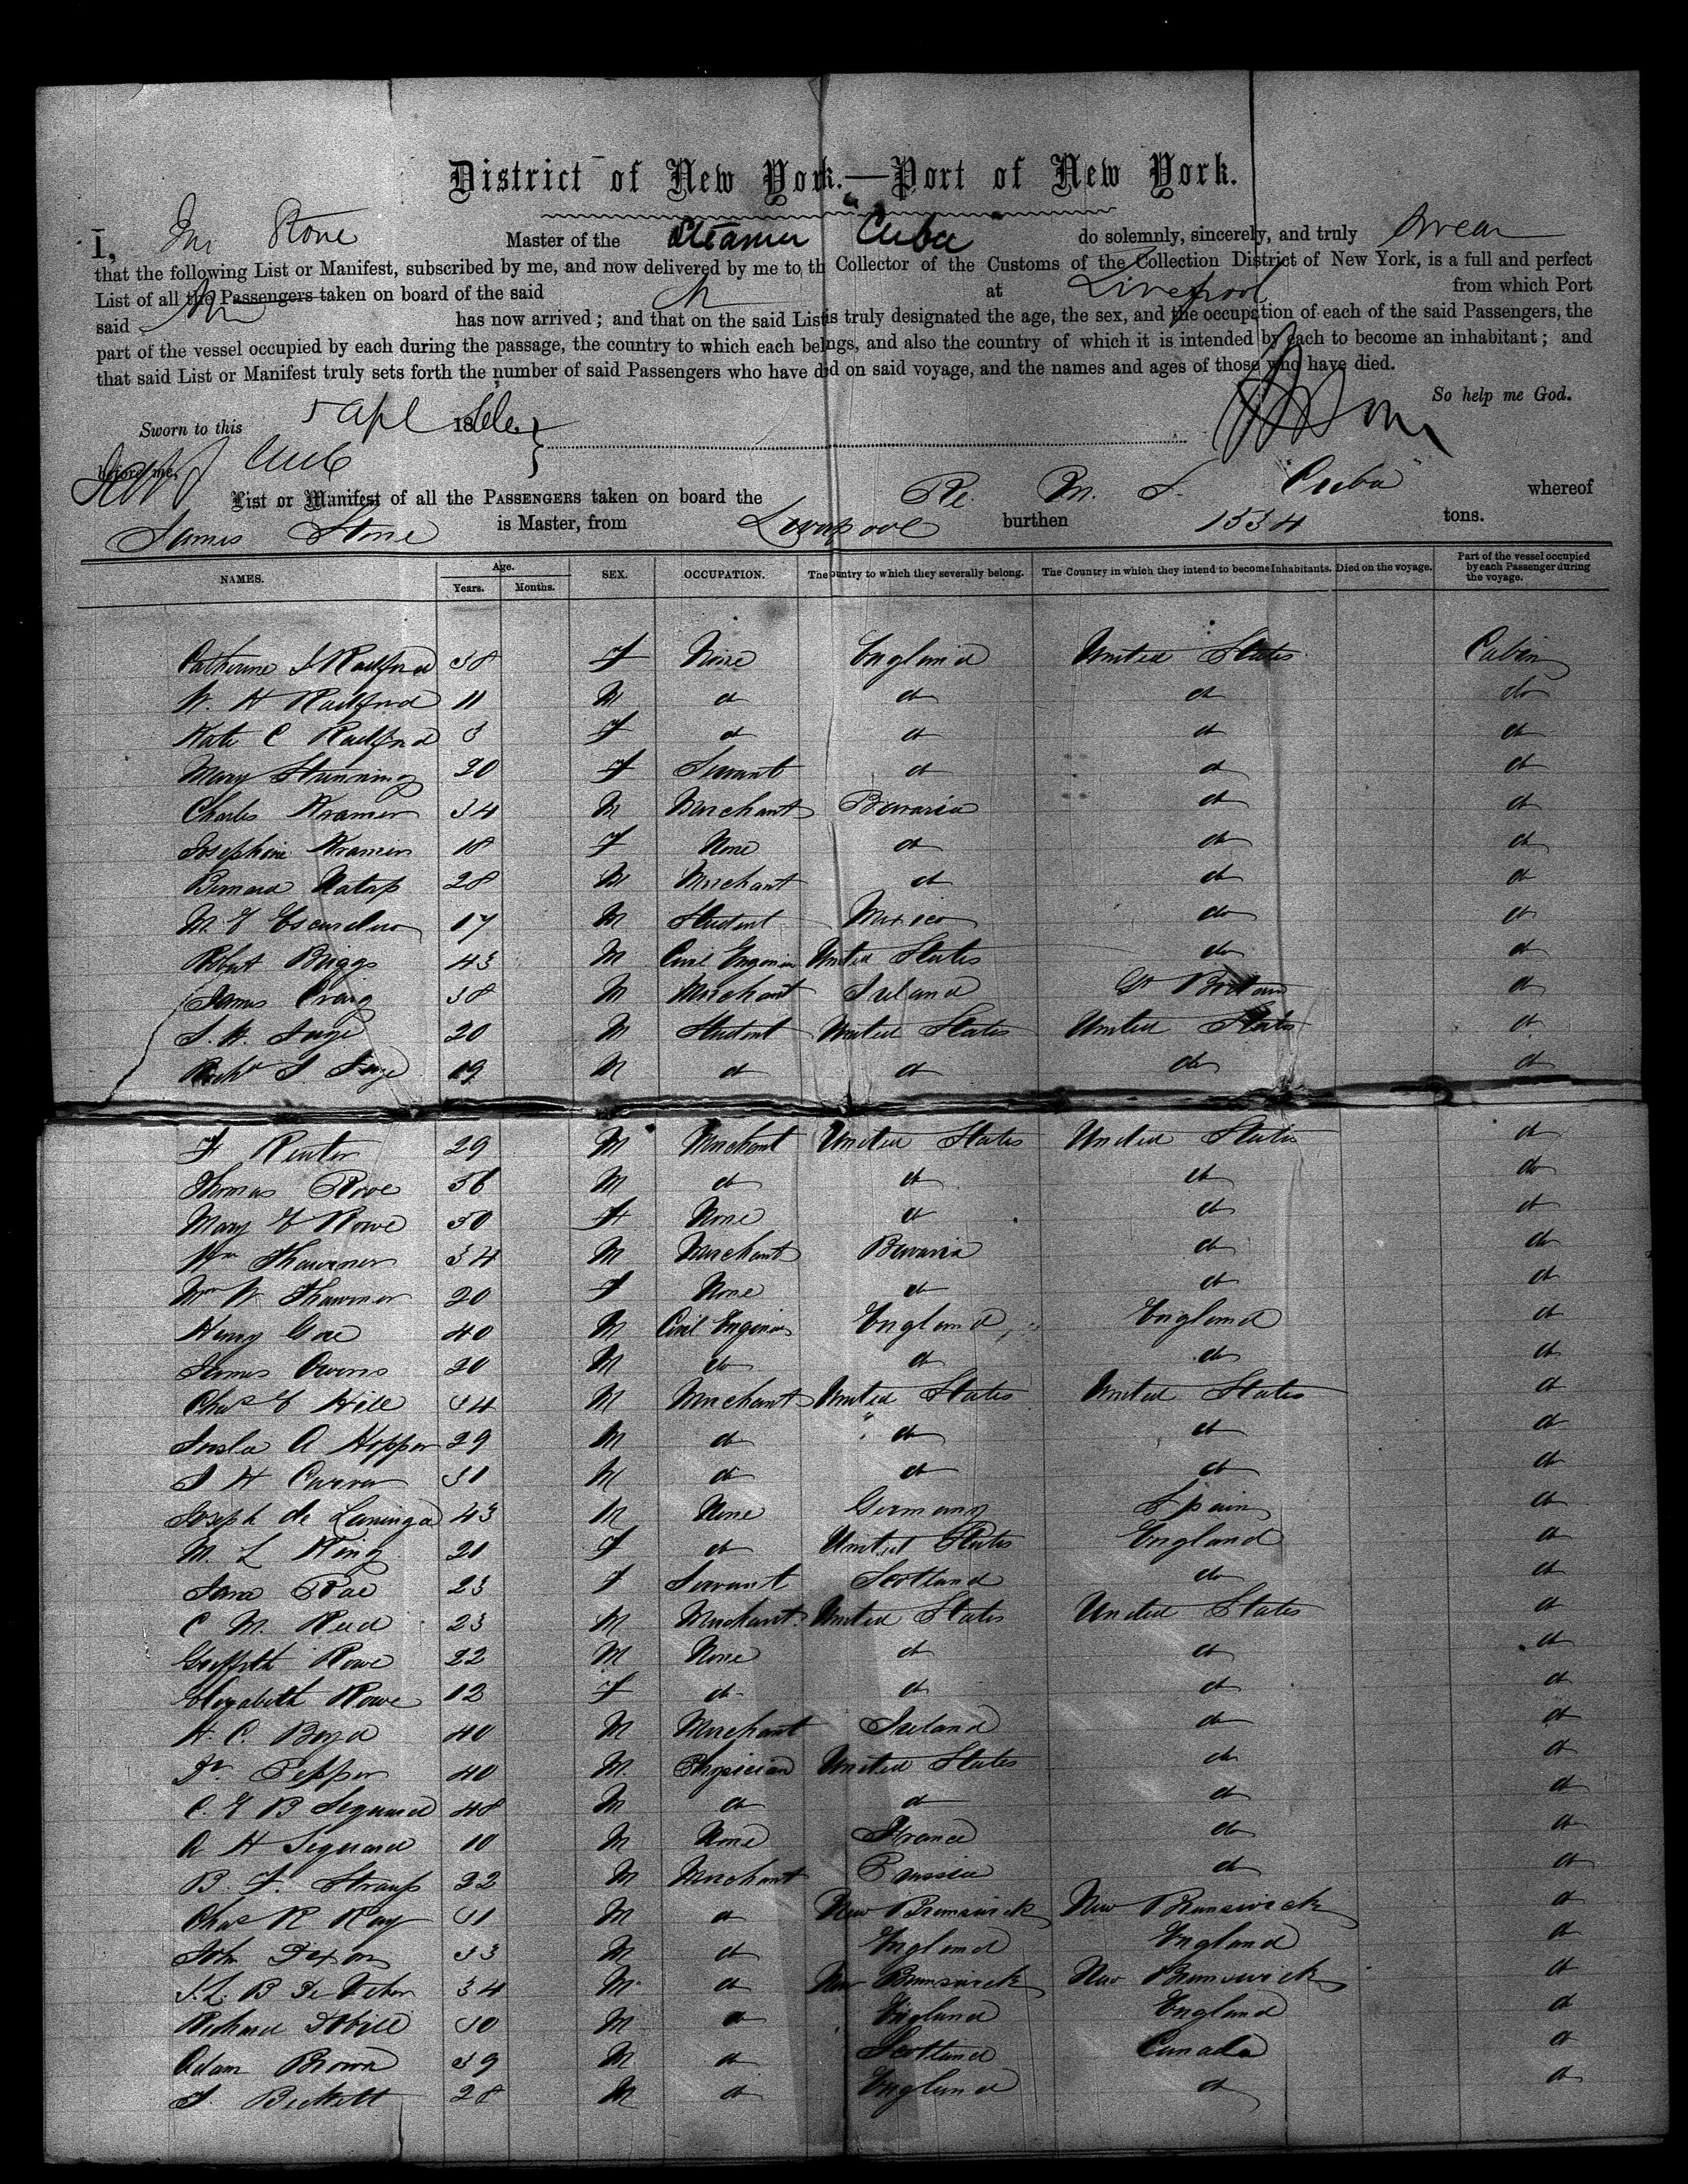 District of New York.—Port of New York.
I, Stone Master of the Steamer Cuba do solemnly, sincerely, and truly swear
that the following List or Manifest, subscribed by me, and now delivered by me to th Collector of the Customs of the Collection District of New York, is a full and perfect
List of all the Passengers taken on board of the said at Liverpool from which Port
said has now arrived; and that on the said List is truly designated the age, the sex, and the occupation of each of the said Passengers, the
part of the vessel occupied by each during the passage, the country to which each belngs, and also the country of which it is intended by each to become an inhabitant; and
that said List or Manifest truly sets forth the number of said Passengers who have did on said voyage, and the names and ages of those who have died.
So help me God.
Sworn to this 5 Apl 18
before me,
List or Manifest of all the Passengers taken on board the R. M. S. "Cuba" whereof
James Stone is Master, from Liverpool burthen 1534 tons.
NAMES. Age. Years. Months. SEX. OCCUPATION. The ountry to which they severally belong. The Country in which they intend to become Inhabitants. Died on the voyage. Part of the vessel occupied by each Passenger during the voyage.
Catherine J Radford 38 F None England United States Cabin
W. H Radford 11 M do do do do
Kate C Radford 3 F do do do do
Mary 20 F Servant do do do
Charles Kramer 34 M Merchant Bavaria do do
Josephine Kramer 18 F None do do do
Bernard 28 M Merchant do do do
M. E Escudero 17 M Student Mexico do do
Robert Briggs 43 M Civil Engineer United States do do
James Craig 38 M Merchant Ireland Gt Britain do
S. W. 20 M Student United States United States do
19 M do do do do
F Reuter 29 M Merchant United States United States do
Thomas Rowe 56 M do do do do
Mary E Rowe 50 F None do do do
Wm 34 M Merchant Bavaria do do
Mrs W. 20 F None do do do
Henry Gore 40 M Civil Engineer England England do
James Owens 20 M do do do do
Chas E Hill 34 M Merchant United States United States do
A Hopper 29 M do do do do
J H 31 M do do do do
Joseph de 43 M None Germany Spain do
M. L King 21 F do United States England do
Jane Rae 23 F Servant Scotland do do
C M. Reed 23 M Merchant United States United States do
Griffith Rowe 22 M None do do do
Elizabeth Rowe 12 F do do do do
H. C. Boyd 40 M Merchant Ireland do do
Dr. Pepper 40 M. Physician United States do do
C. E B Sequard 48 M do do do do
A H Sequard 10 M None France do do
B. F. Straus 32 M Merchant Prussia do do
Chas R Ray 31 M do New Brunswick New Brunswick do
John 33 M do England England do
J. L. B De Veber 34 M do New Brunswick New Brunswick do
Richard M do England England do
Adam Brown 39 M do Scotland Canada do
J. Beckett 28 M do England do do